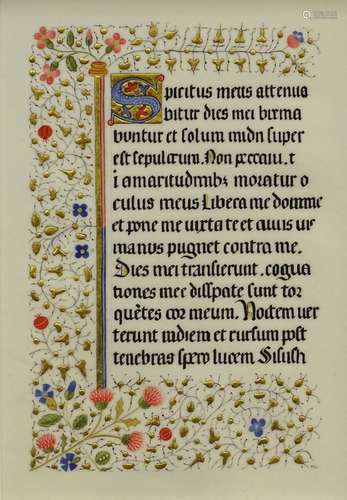 Spicitus meus attenua
bitur dies mei bixma
buntur et solum midn super
est sepulcrum. Non peccavi. t
i amaritudmbz moratur o
culus meus Libera me domme
et pone me uixta te et auvis uif
manus pugnet contra me.
Dies mei transierunt. cogua
tiones mee disspate sunt tor
quētes cor meum. Noctem uer
terunt mdiem et rursum post
tenebras spero lucem Sisush